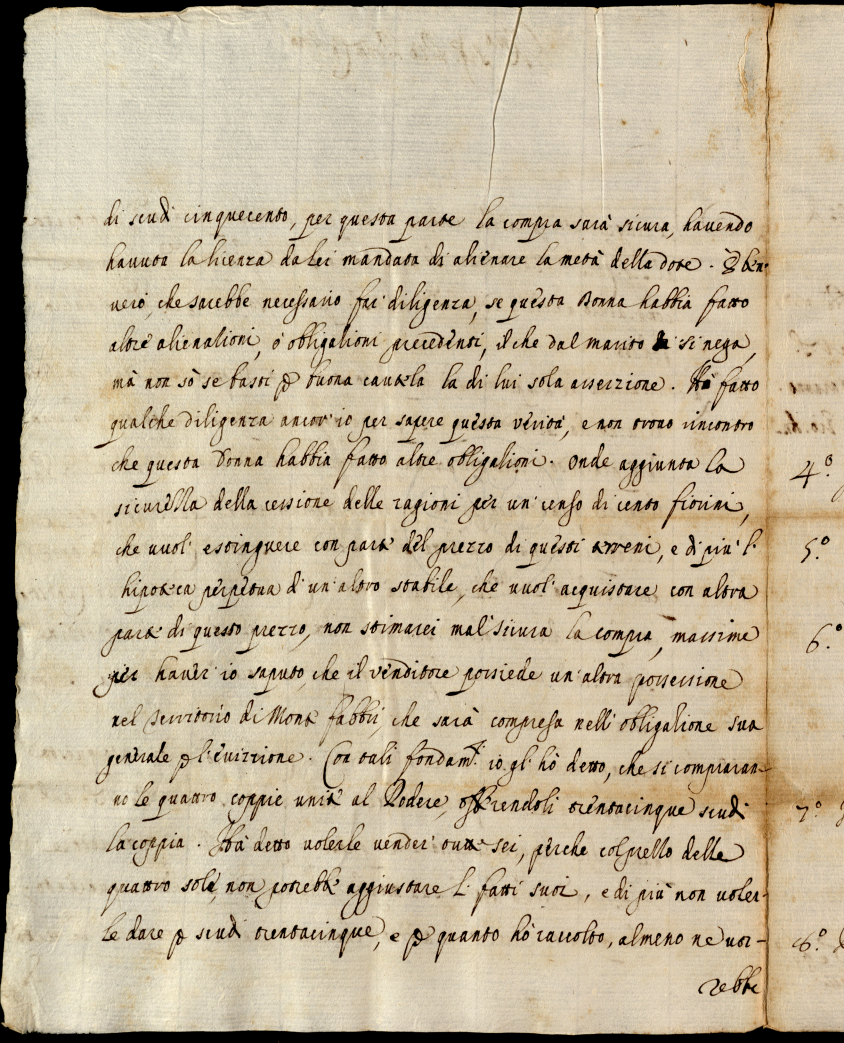 di scudi cinquecento, per questa parte la compra sarà sicura, havendo
havuta la licenza da lei mandata di alienare la metà della dote. È ben
vero, che sarebbe necessario far diligenza, se questa Donna habbia fatto
altre alienationi, ò obbligationi precedenti, il che dal marito si nega,
mà non sò se basti p buona cautela la di lui sola asserzione. Hà fatto
qualche diligenza ancor' io per sapere questa verità, e non trovo rincontro
che questa Donna habbia fatto altre obbligationi. Onde aggiunta la
sicurezza della cessione delle ragioni per un' censo di cento fiorini,
che vuol' estinguere con parte del prezzo di questi terreni, e di più l'
hipoteca perpetua d' un' altro stabile, che vuol' acquistare con altra
parte di questo prezzo, non stimarei mal' sicura la compra, massime
per haver' io saputo, che il venditore possiede un' altra possessione
nel Territorio di Monte fabbri, che sarà compresa nell' obbligatione sua
generale p l' evizzione. Con tali fondam.ti io gl' hò detto, che si compraran-
no le quattro coppie unite al Podere, offerendoli trentacinque scudi
la coppia. Hà detto volerle vender' tutte sei, perche col prezzo delle
quattro sole, non potrebbe aggiustare l' fatti suoi, e di più non voler-
le dare p scudi trentacinque, e p quanto hò raccolto, almeno ne vor-
rebbe
4.º
5.º
6.º
7.º
8.º